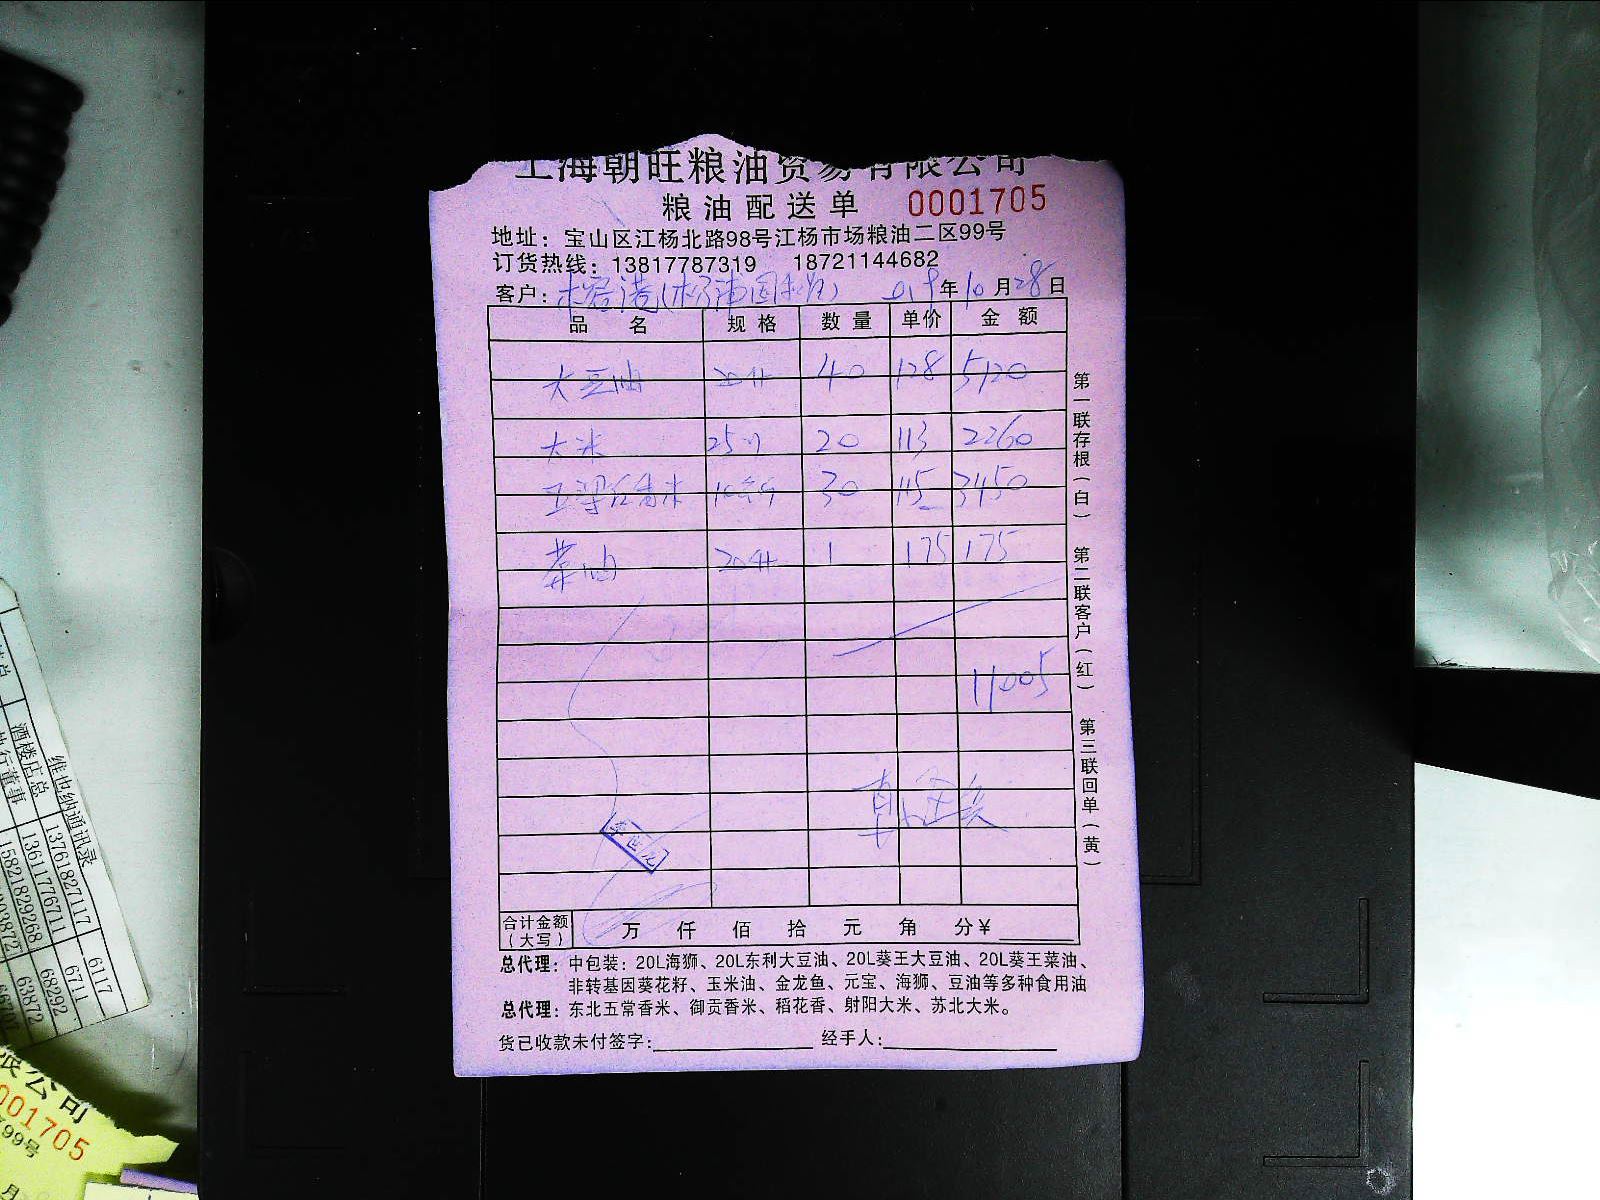 上海朝旺粮油贸易有限公司
粮油配送单 0001705
地址：宝山区江杨北路98号江杨市场粮油二区99号
订货热线：13817787319 18721144682
客户： 年10月28日
品名 规格 数量 单价 金额
大豆油 20升 40 128 5120
大米 25 20 113 2260
香米 30 115 3450
菜油 20升 1 175 175
11005
合计金额（大写） 万 仟 佰 拾 元 角 分￥
总代理：中包装：20L海狮、20L东利大豆油、20L葵王大豆油、20L葵王菜油、
非转基因葵花籽、玉米油、金龙鱼、元宝、海狮、豆油等多种食用油
总代理：东北五常香米、御贡香米、稻花香、射阳大米、苏北大米。
货已收款未付签字： 经手人：
第一联存根（白）
第二联客户（红）
第三联回单（黄）
维也纳通讯录
酒楼店总 13761827117 6117
执行董事 13611776711 6711
15821829268 68292
63872
公司
001705
99号
月